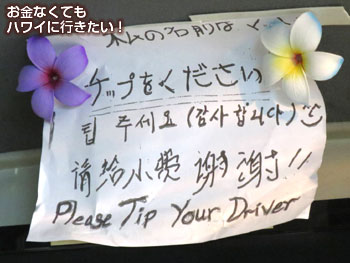 お金なくても
ハワイに行きたい！
私の名前は
チップをください
팁 주세요 (감사합니다)
請給小費 謝謝!!
Please Tip Your Driver